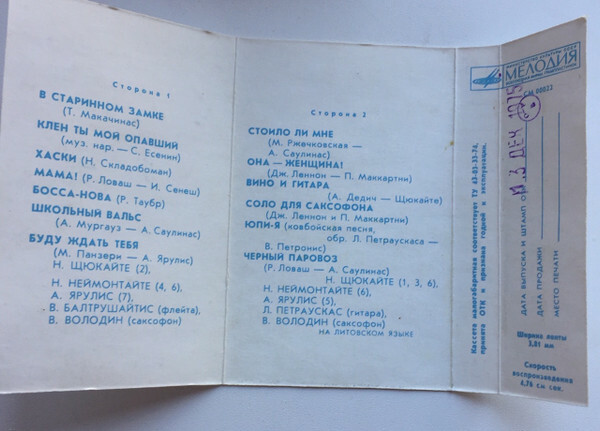 Сторона 1
В СТАРИННОМ ЗАМКЕ
(Т. Макачинас)
КЛЕН ТЫ МОЙ ОПАВШИЙ
(муз. нар. — С. Есенин)
ХАСКИ (Н. Складобоман)
МАМА! (Р. Ловаш — И. Сенеш)
БОССА-НОВА (Р. Таубр)
ШКОЛЬНЫЙ ВАЛЬС
(А. Мургауз — А. Саулинас)
БУДУ ЖДАТЬ ТЕБЯ
(М. Панзери — А. Ярулис)
Н. ЩЮКАЙТЕ (2),
Н. НЕЙМОНТАЙТЕ (4, 6),
А. ЯРУЛИС (7),
В. БАЛТРУШАЙТИС (флейта),
В. ВОЛОДИН (саксофон)
Сторона 2
СТОИЛО ЛИ МНЕ
(М. Ржачковская —
А. Саулинас)
ОНА — ЖЕНЩИНА!
(Дж. Леннон — П. Маккартни)
ВИНО И ГИТАРА
(А. Дедич — Щюкайте)
СОЛО ДЛЯ САКСОФОНА
(Дж. Леннон и П. Маккартни)
ЮПИ-Я (ковбойская песня,
обр. Л. Петраускаса —
В. Петронис)
ЧЕРНЫЙ ПАРОВОЗ
(Р. Ловаш — А. Саулинас)
Н. ЩЮКАЙТЕ (1, 3, 6),
Н. НЕЙМОНТАЙТЕ (6),
А. ЯРУЛИС (5),
Л. ПЕТРАУСКАС (гитара),
В. ВОЛОДИН (саксофон)
НА ЛИТОВСКОМ ЯЗЫКЕ
Кассета малогабаритная соответствует ТУ 43-03-33-74,
принята ОТК и признана годной к эксплуатации.
МИНИСТЕРСТВО КУЛЬТУРЫ СССР
МЕЛОДИЯ
СМ 00022
ДАТА ВЫПУСКА И ШТАМП
3 ДЕК 1975
ДАТА ПРОДАЖИ
МЕСТО ПЕЧАТИ
Ширина ленты
3,81 мм
Скорость
воспроизведения
4,76 см сек.